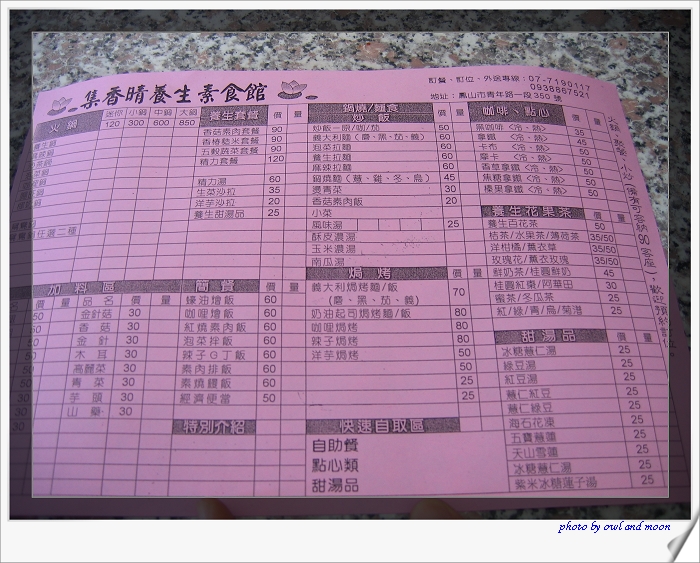 集香晴養生素食館
訂餐、訂位、外送專線：07-7190117
0938867521
地址：鳳山市青年路一段350號
火鍋 迷你 小鍋 中鍋 大鍋
120 300 600 850
養生套餐 價 量
香菇素肉套餐 90
香椿糙米套餐 90
五穀蔬菜套餐 90
精力套餐 120
精力湯 60
生菜沙拉 35
洋芋沙拉 20
養生甜湯品 25
任選二種
鍋燒/麵食 價 量
炒飯
義大利麵（磨、黑、茄、義） 60
泡菜拉麵 50
養生拉麵 60
麻辣拉麵 60
鍋燒麵（薏、雞、冬、烏） 45
燙青菜 30
香菇素肉飯 20
小菜
風味湯 25
酥皮濃湯
玉米濃湯
南瓜湯
咖啡、點心 價 量
黑咖啡〈冷、熱〉 35
拿鐵〈冷、熱〉 45
卡布〈冷、熱〉 50
摩卡〈冷、熱〉 50
香草拿鐵〈冷、熱〉 50
焦糖拿鐵〈冷、熱〉 50
榛果拿鐵〈冷、熱〉 50
養生花果茶 價 量
養生百花茶 50
桔茶/水果茶/薄荷茶 35/50
洋柑橘/薰衣草 35/50
玫瑰花/薰衣玫瑰 35/50
鮮奶茶/桂圓鮮奶 45
桂圓紅棗/阿華田 30
蜜茶/冬瓜茶 25
紅/綠/青/烏/菊港 25
加料區
價 量 品名 價 量
金針菇 30
香菇 30
金針 30
木耳 30
高麗菜 30
青菜 30
芋頭 30
山藥 30
簡餐 價 量
蠔油燴飯 60
咖哩燴飯 60
紅燒素肉飯 60
泡菜拌飯 60
辣子G丁飯 60
素肉排飯 60
素燒鰻飯 60
經濟便當 50
特別介紹
焗烤 價 量
義大利焗烤麵/飯
（磨、黑、茄、義） 70
奶油起司焗烤麵/飯 80
咖哩焗烤 80
辣子焗烤 80
洋芋焗烤 50
快速自取區
自助餐
點心類
甜湯品
甜湯品 價 量
冰糖薏仁湯 25
綠豆湯 25
紅豆湯 25
薏仁紅豆 25
薏仁綠豆 25
海石花凍 25
五寶薏蓮 25
天山雪蓮 25
冰糖薏仁湯 25
紫米冰糖蓮子湯 25
photo by owl and moon